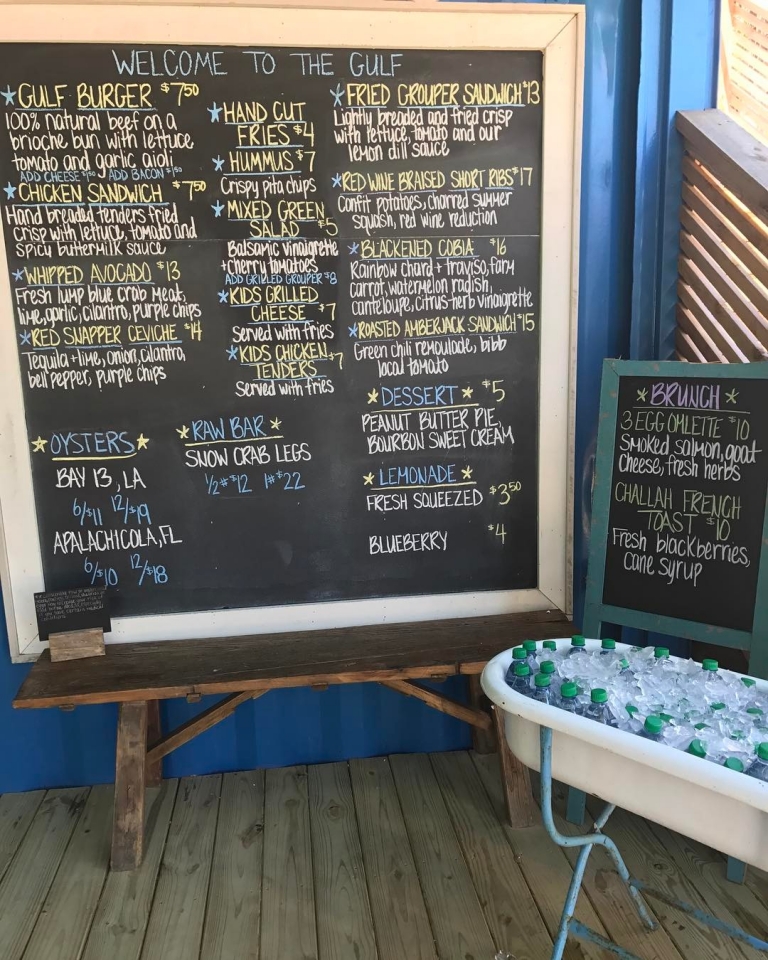 WELCOME TO THE GULF
★GULF BURGER $7.50
100% natural beef on a
brioche bun with lettuce
tomato and garlic aioli
ADD CHEESE $1.50 ADD BACON $1.50
★CHICKEN SANDWICH $7.50
Hand breaded tenders fried
crisp with lettuce, tomato and
spicy buttermilk sauce
★WHIPPED AVOCADO $13
Fresh lump blue crab meat,
lime, garlic, cilantro, purple chips
★RED SNAPPER CEVICHE $14
Tequila + lime, onion, cilantro,
bell pepper, purple chips
★HAND CUT
FRIES $4
★HUMMUS $7
Crispy pita chips
★MIXED GREEN
SALAD $5
Balsamic vinaigrette
+ cherry tomatoes
ADD GRILLED GROUPER $8
★KIDS GRILLED
CHEESE $7
served with fries
★KIDS CHICKEN
TENDERS $7
Served with fries
★FRIED GROUPER SANDWICH $13
Lightly breaded and fried crisp
with lettuce, tomato and our
lemon dill sauce
★RED WINE BRAISED SHORT RIBS $17
Confit potatoes, charred summer
squash, red wine reduction
★BLACKENED COBIA $16
Rainbow chard + traviso, farm
carrot, watermelon radish,
canteloupe, citrus-herb vinaigrette
★ROASTED AMBERJACK SANDWICH $15
Green chili remoulade, bibb
local tomato
★OYSTERS★
BAY 13, LA
6/$11 12/$19
APALACHICOLA, FL
6/$10 12/$18
★RAW BAR★
SNOW CRAB LEGS
1/2# $12 1# $22
★DESSERT★ $5
PEANUT BUTTER PIE,
BOURBON SWEET CREAM
★LEMONADE★
FRESH SQUEEZED $3.50
BLUEBERRY $4
★BRUNCH★
3 EGG OMLETTE $10
Smoked salmon, goat
cheese, fresh herbs
CHALLAH FRENCH
TOAST $10
Fresh blackberries,
cane syrup